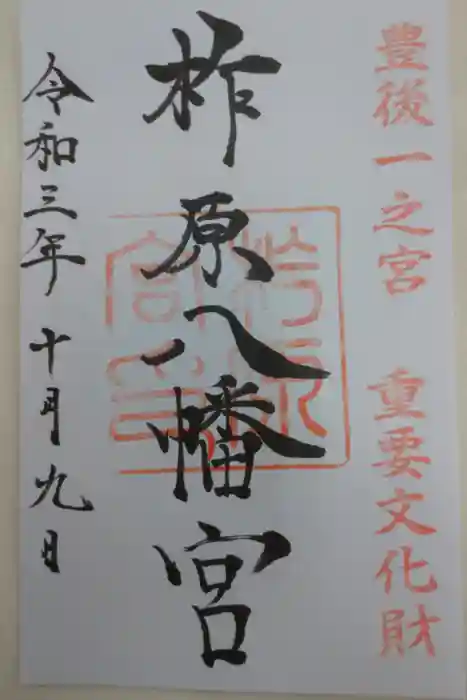 豊後一之宮 重要文化財
柞原八幡宮
令和三年 十月九日